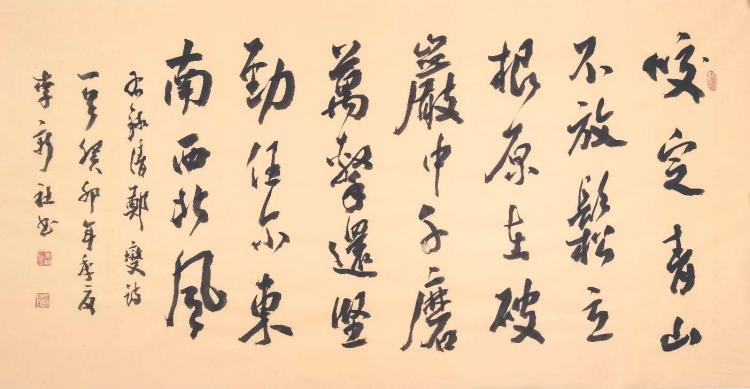 咬定青山
不放鬆立
根原在破
巖中千磨
萬擊還堅
勁任尔東
南西北風
右錄清鄭燮詩
一首癸卯年季夏
李新社書